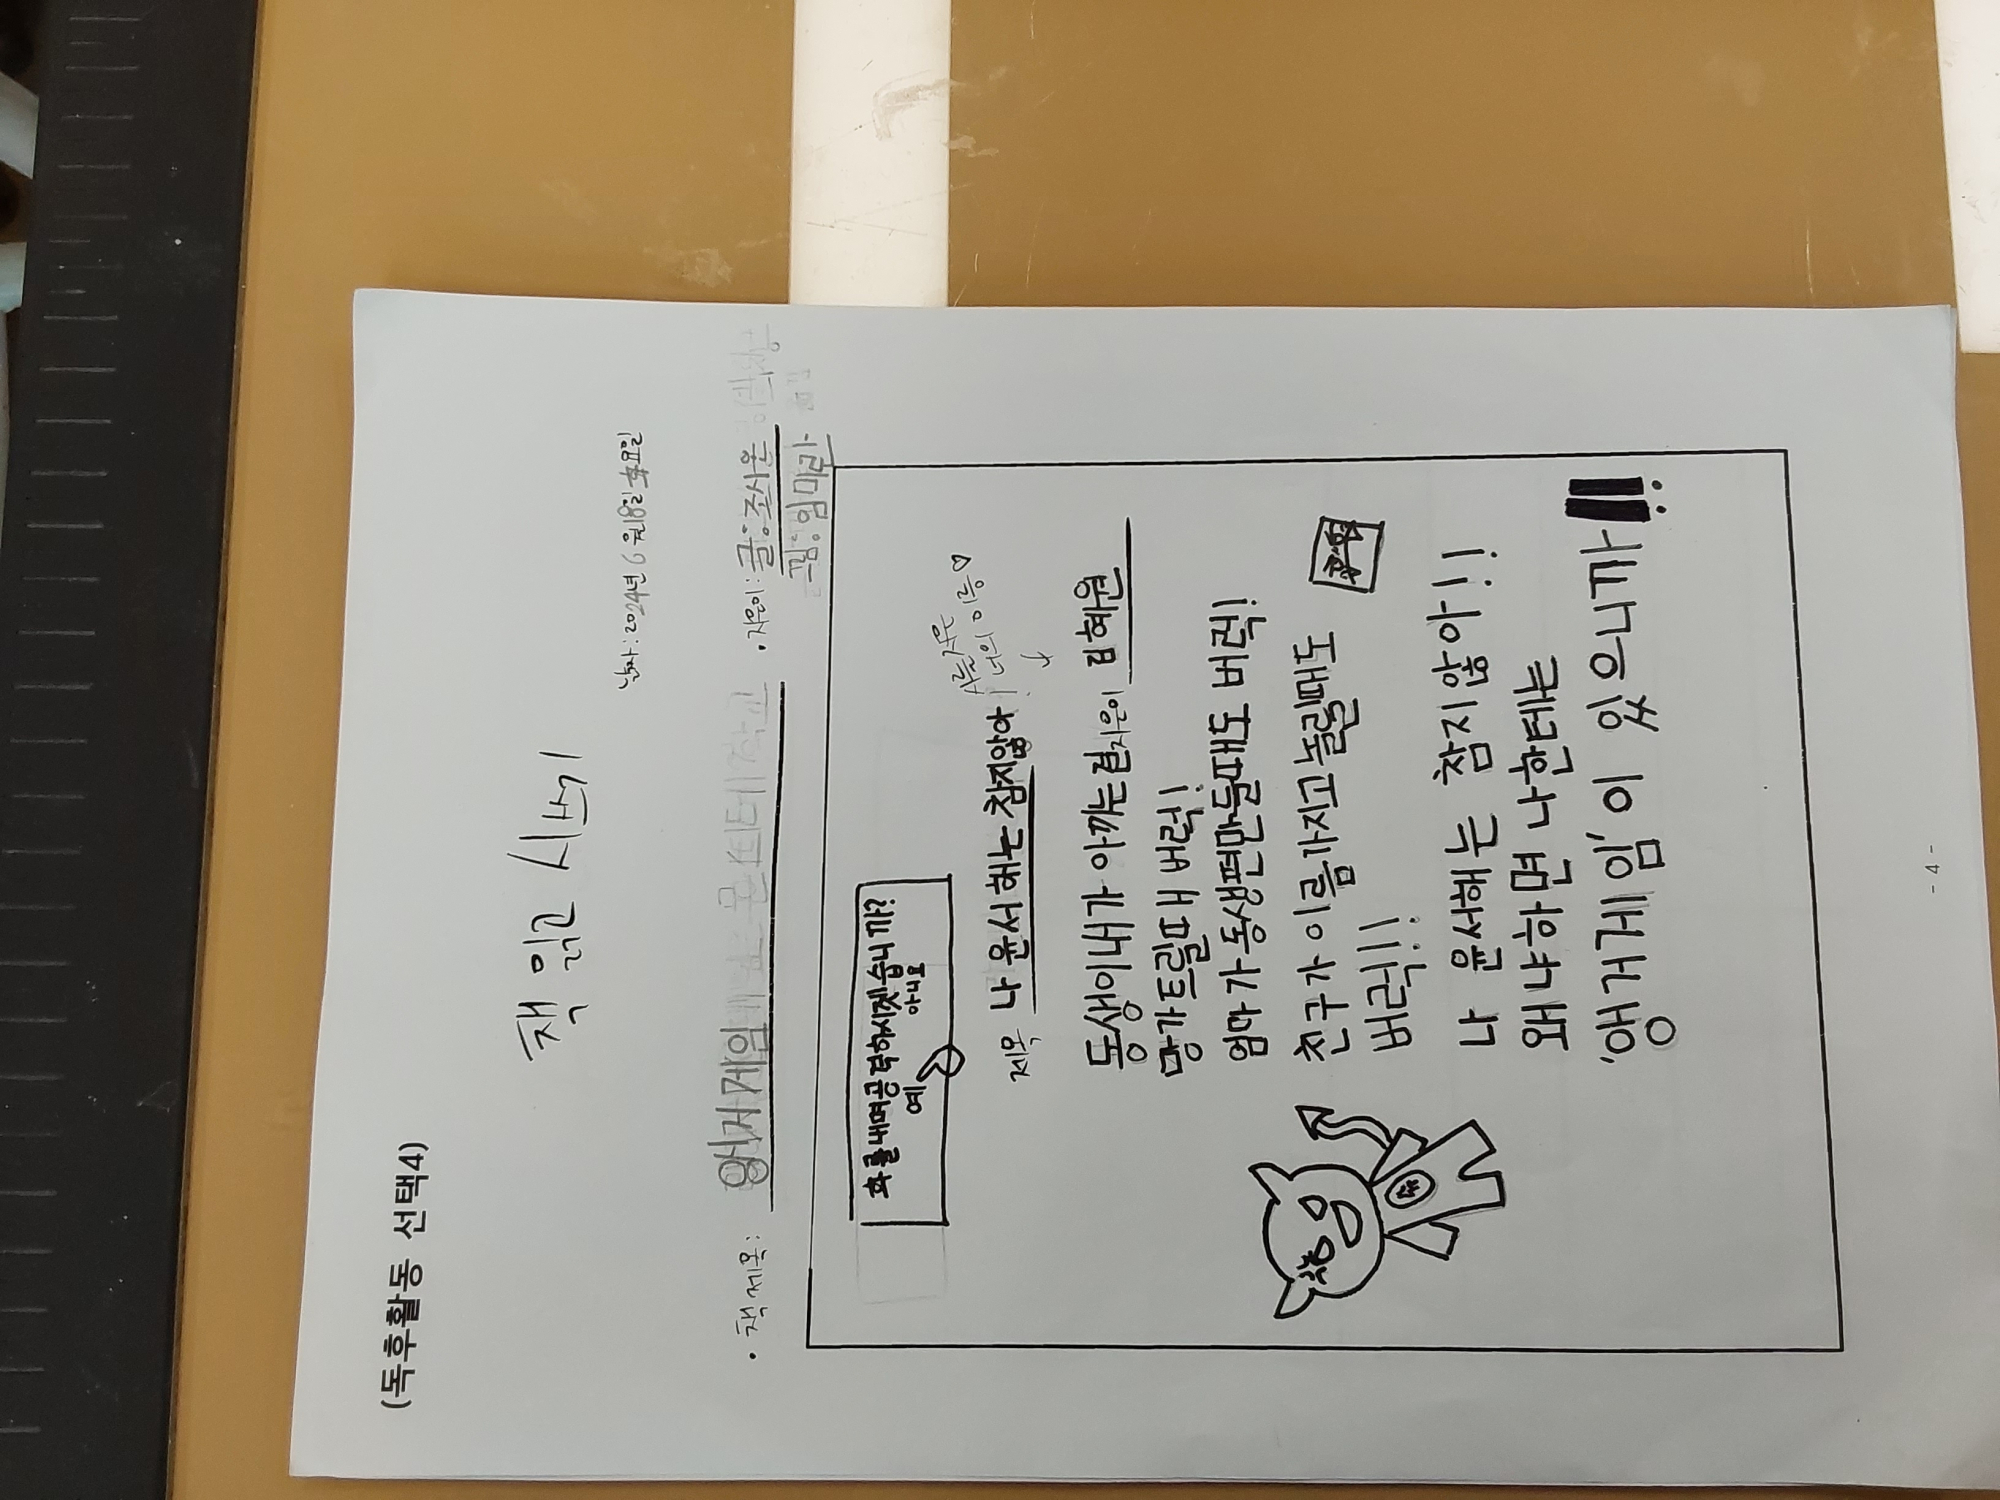 (독후활동 선택4)
책 읽고 시쓰기
날짜: 2024년 6월 18일 화요일
• 책 제목: 왕거게임
• 지은이: 글: 조시온
그림: 임미란
화를 내며 공격하시겠습니까?
예 아니요
시를 지은
너의 이름♡
제목 나 윤서해는 참지않아!
지은이 김혜원
동생이 내가 아끼는 걸
망가트릴때 버럭!
엄마가 동생편만들때도 버럭!
친구가 이름가지고 놀릴때도
버럭!!
나 윤서해는 참지 않아!!
왜냐하면 나한테는
'앵거게임'이 있으니까!!
- 4 -